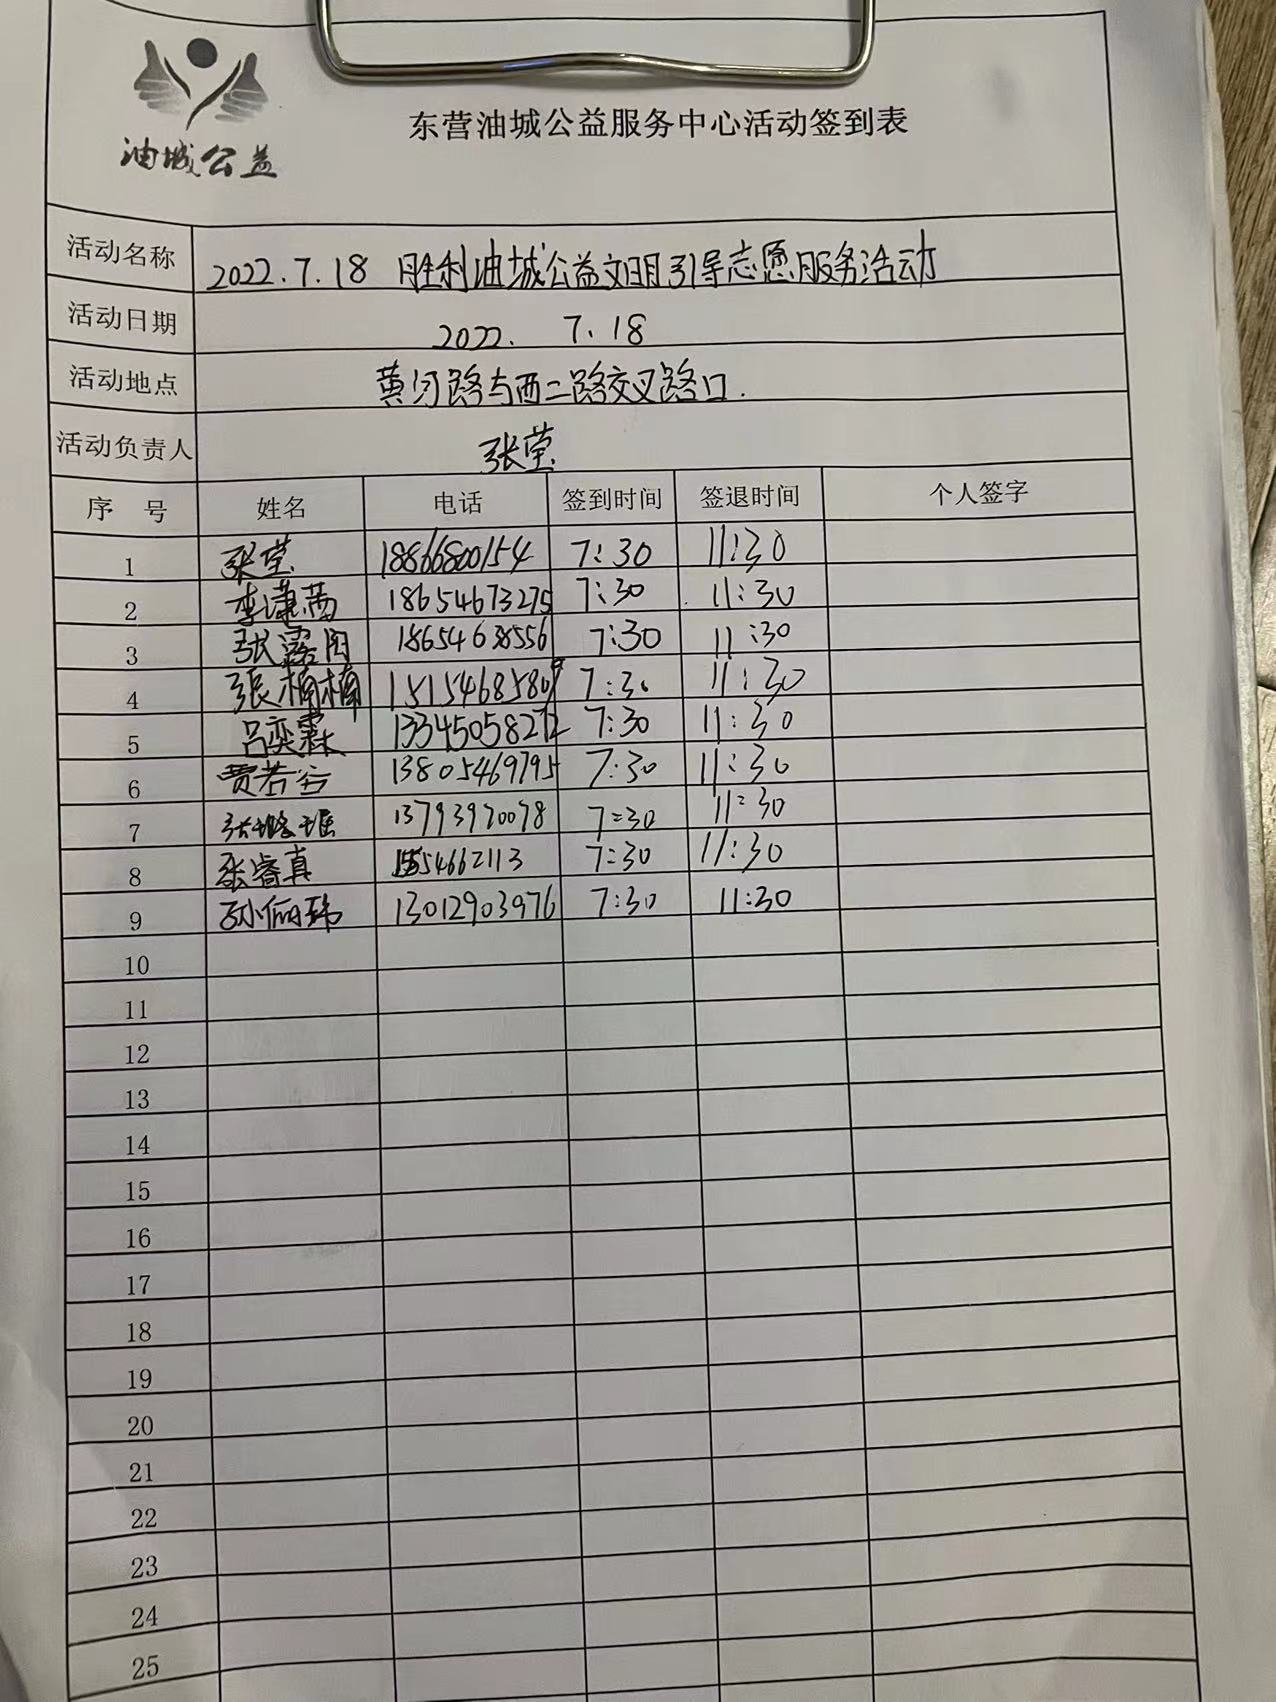 油城公益
东营油城公益服务中心活动签到表
活动名称 2022.7.18 胜利油城公益文明引导志愿服务活动
活动日期 2022. 7.18
活动地点 黄河路与西二路交叉路口.
活动负责人 张莹
序 号 姓名 电话 签到时间 签退时间 个人签字
1 张莹 18866800154 7:30 11:30
2 李潇茜 18654673275 7:30 11:30
3 张露丹 18654638556 7:30 11:30
4 张楠楠 15154685809 7:30 11:30
5 吕奕霖 13345058272 7:30 11:30
6 贾若谷 13805469795 7:30 11:30
7 张璐瑶 13793970078 7:30 11:30
8 张睿真 7:30 11:30
9 孙俪玮 13012903976 7:30 11:30
10
11
12
13
14
15
16
17
18
19
20
21
22
23
24
25